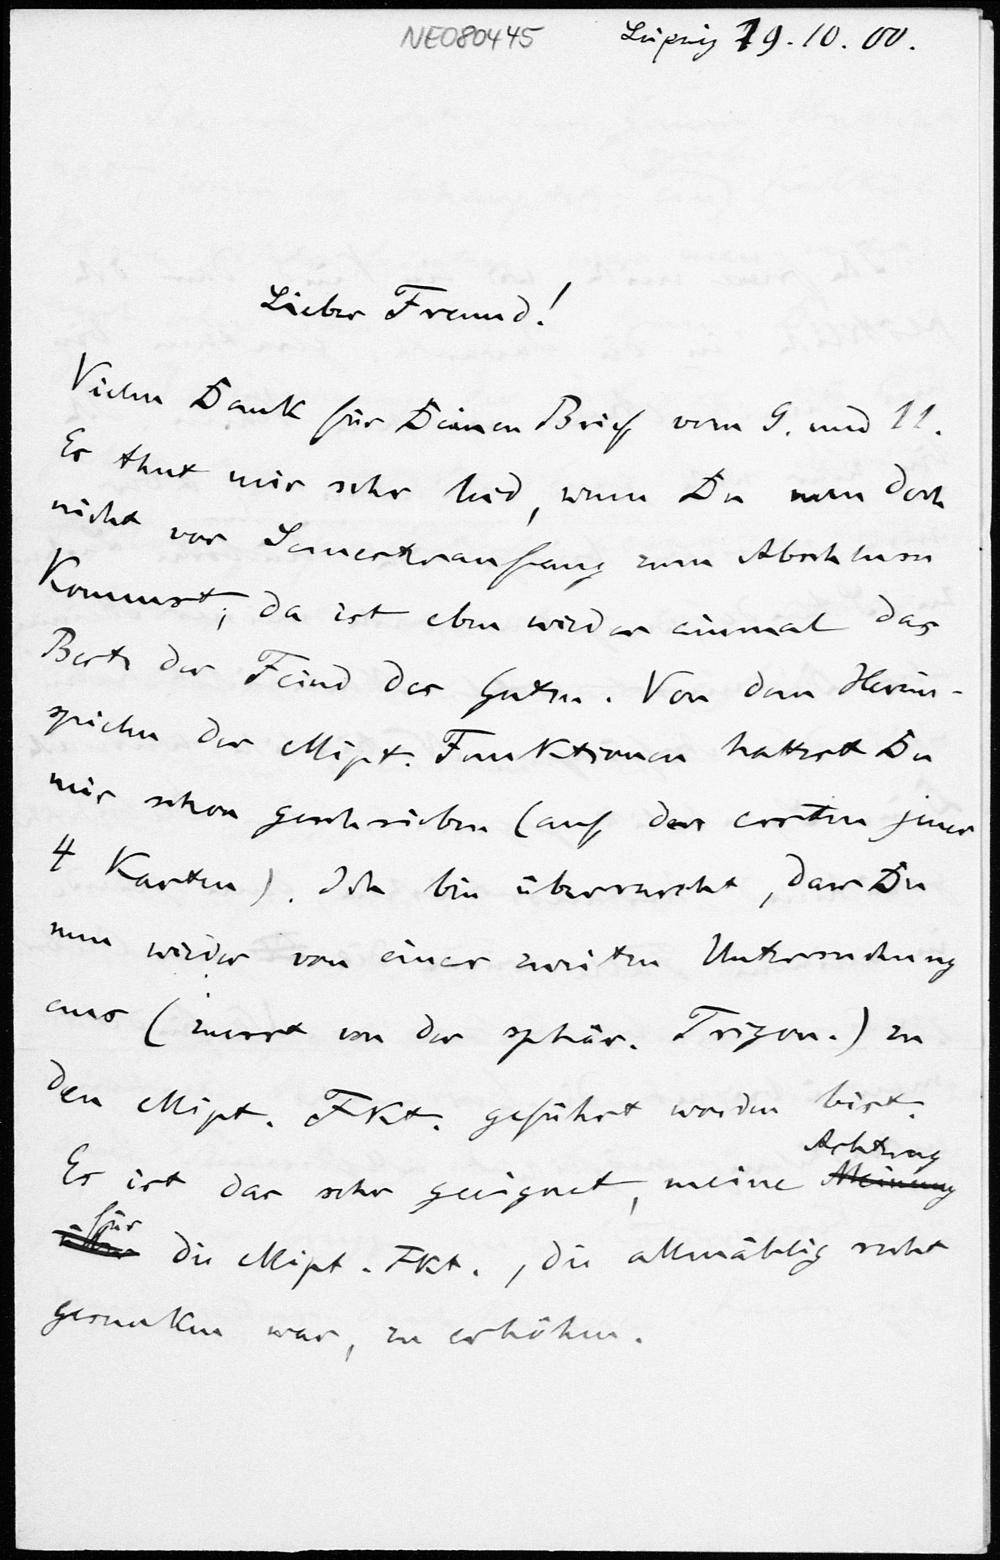 NE080445 Leipzig 19.10.00.
Lieber Freund!
Vielen Dank für Deinen Brief vom 9. und 11.
Es thut mir sehr leid, wenn Du nun doch
nicht vor Semesteranfang zum Abschluss
kommst; da ist eben wieder einmal das
Beste der Feind des Guten. Von dem Herein-
spielen der ellipt. Funktionen hattest Du
mir schon geschrieben (auf der ersten jener
4 Karten). Ich bin überrascht, dass Du
nun wieder von einer zweiten Untersuchung
aus (zuerst von der sphär. Trigon.) zu
den ellipt. Fkt. geführt worden bist.
Es ist das sehr geeignet, meine Achtung
Meinung
für
über die ellipt. Fkt., die allmählig recht
gesunken war, zu erhöhen.